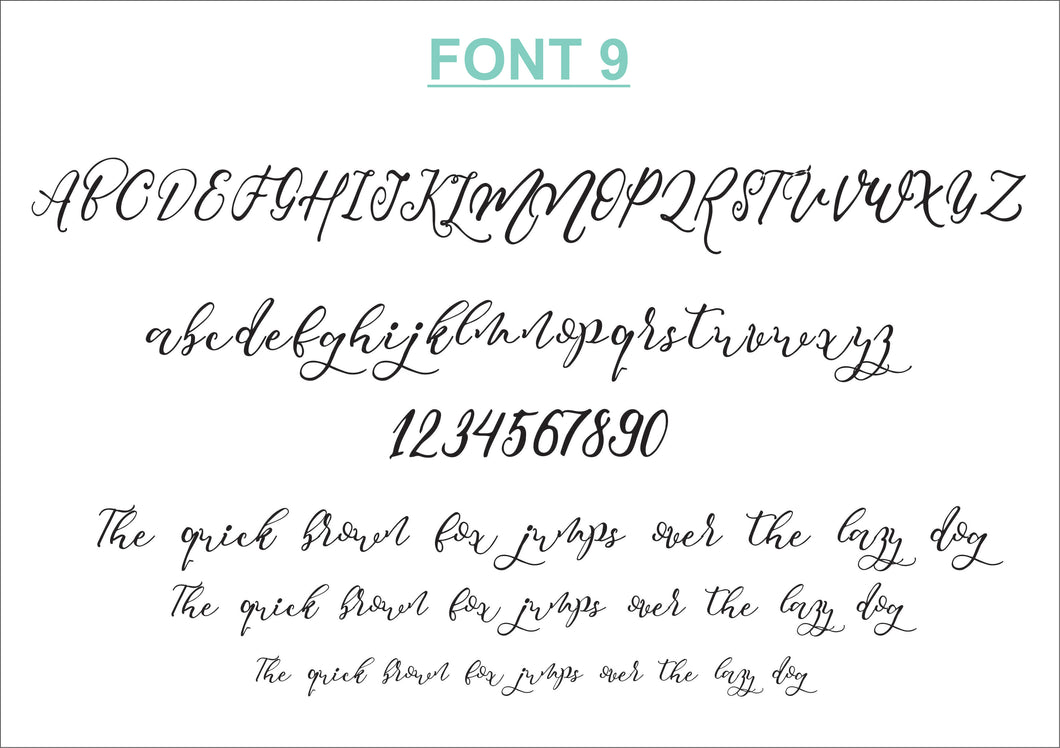 FONT 9
ABCDEFGHIJKLMNOPQRSTUVWXYZ
abcdefghijklmnopqrstuvwxyz
1234567890
The quick brown fox jumps over the lazy dog
The quick brown fox jumps over the lazy dog
The quick brown fox jumps over the lazy dog